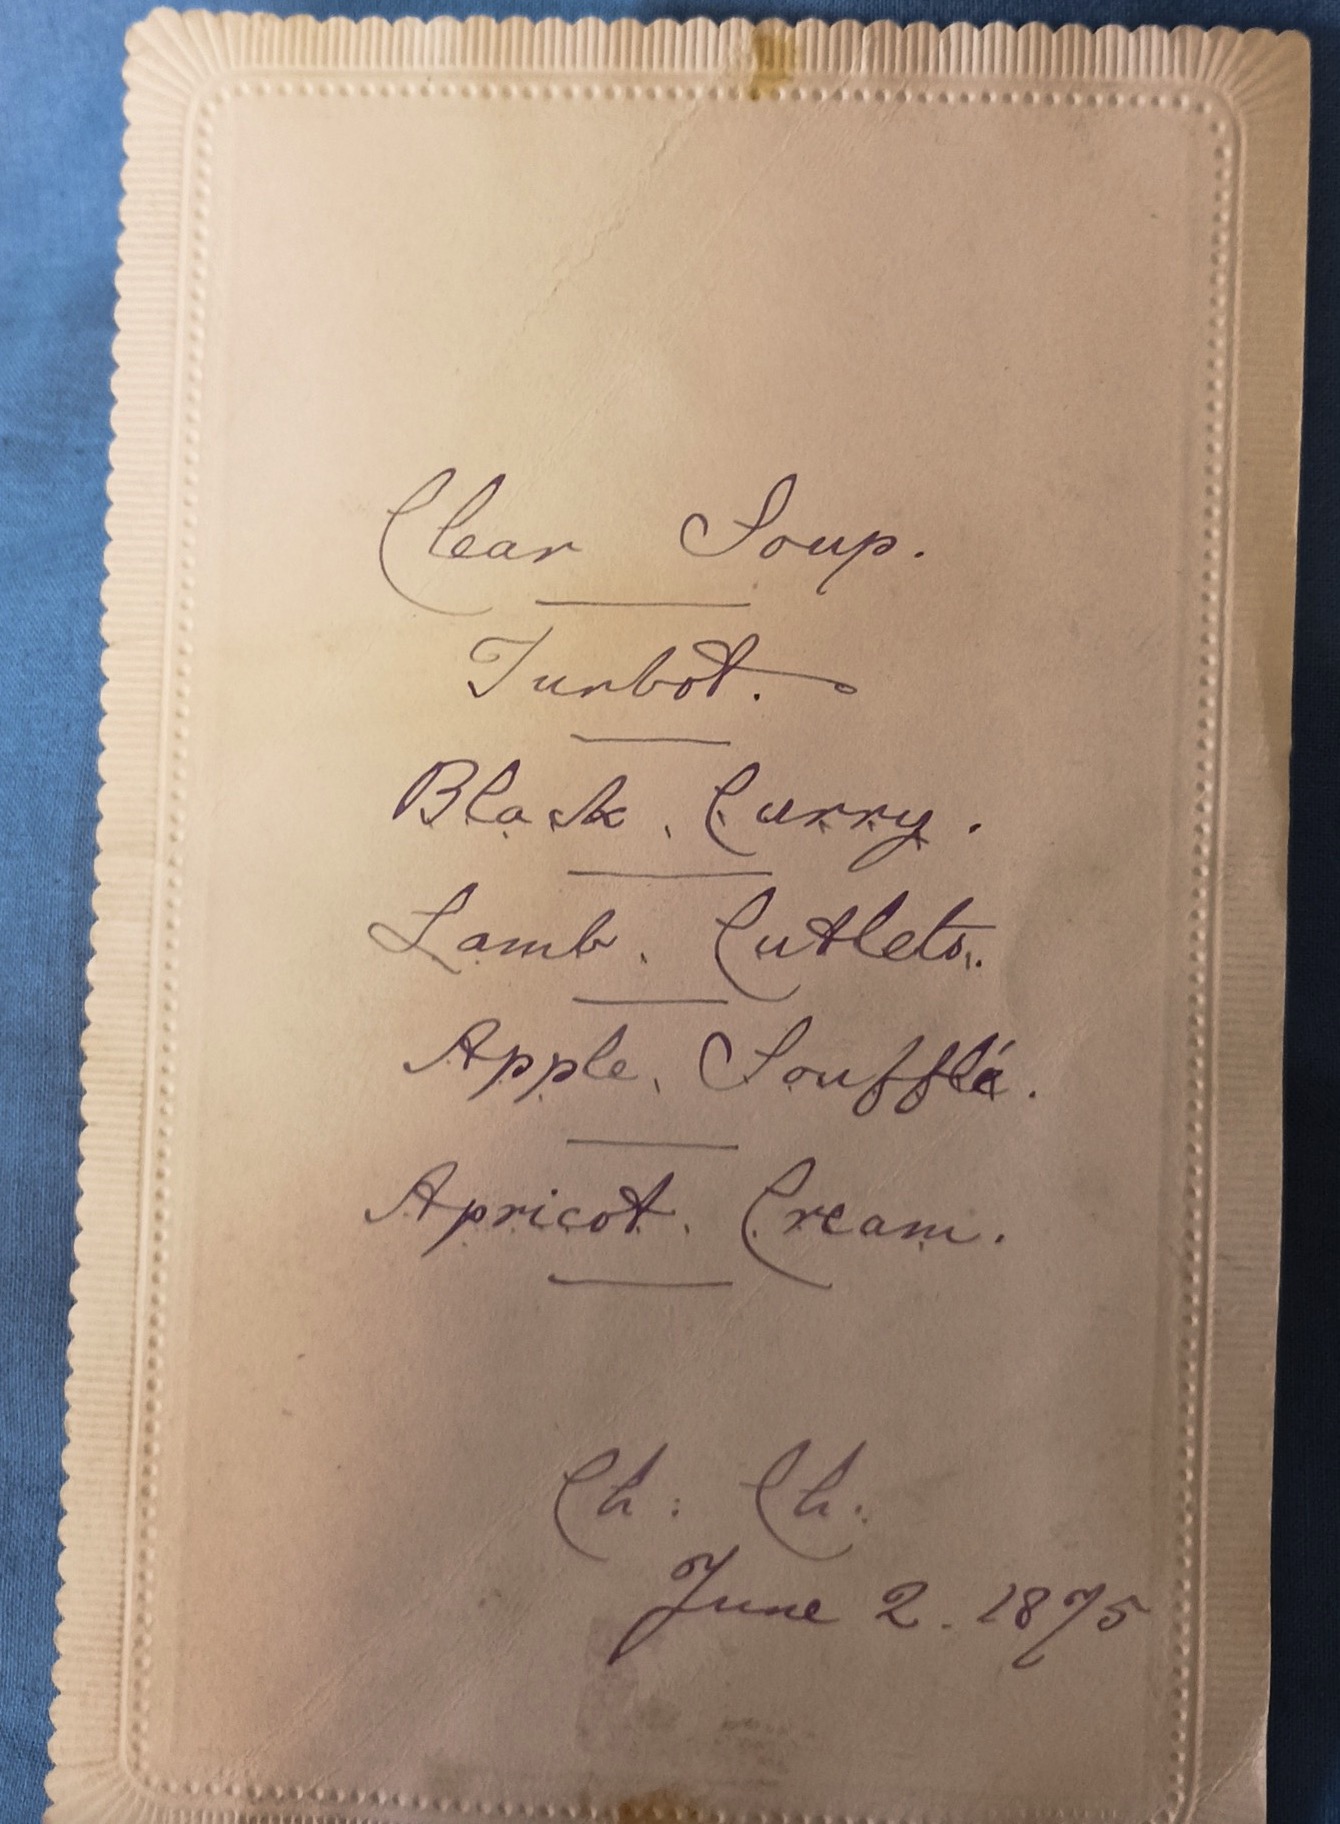 Clear Soup.
Turbot.
Black. Curry.
Lamb. Cutlets.
Apple. Soufflé.
Apricot. Cream.
Ch: Ch:
June 2. 1875